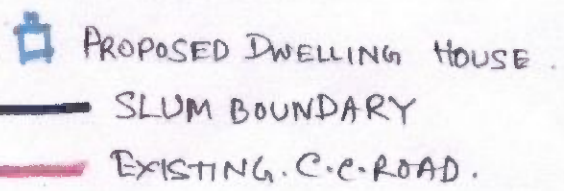 PROPOSED DWELLING HOUSE.
SLUM BOUNDARY
EXISTING.C.C.ROAD.